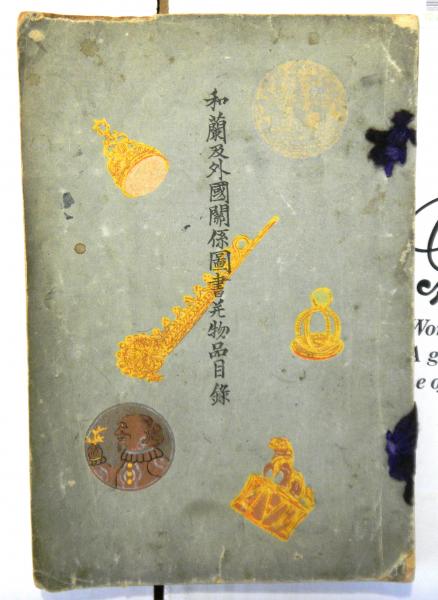 和蘭及外國關係圖書並物品目錄
Wor
A g
e o